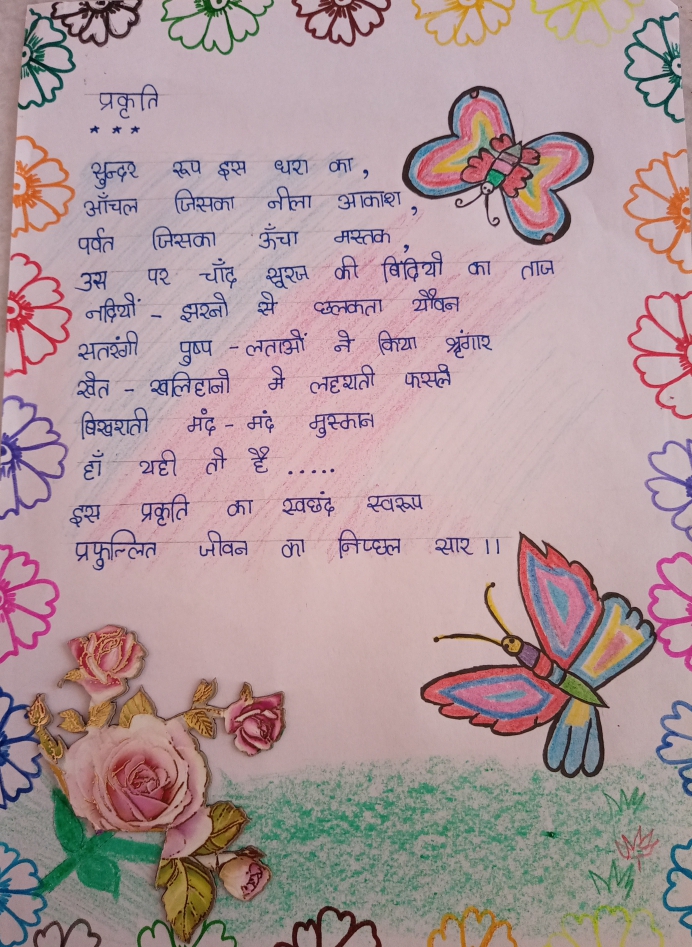 प्रकृति
* * *
सुन्दर रूप इस धरा का,
आँचल जिसका नीला आकाश,
पर्वत जिसका ऊँचा मस्तक,
उस पर चाँद सूरज की बिंदियों का ताज
नदियों - झरनो से छलकता यौवन
सतरंगी पुष्प - लताओं ने किया श्रृंगार
खेत - खलिहानो मे लहराती फसले
बिखराती मंद - मंद मुस्कान
हाँ यही तो है .....
इस प्रकृति का स्वछंद स्वरूप
प्रफुल्लित जीवन का निष्छल सार ।।